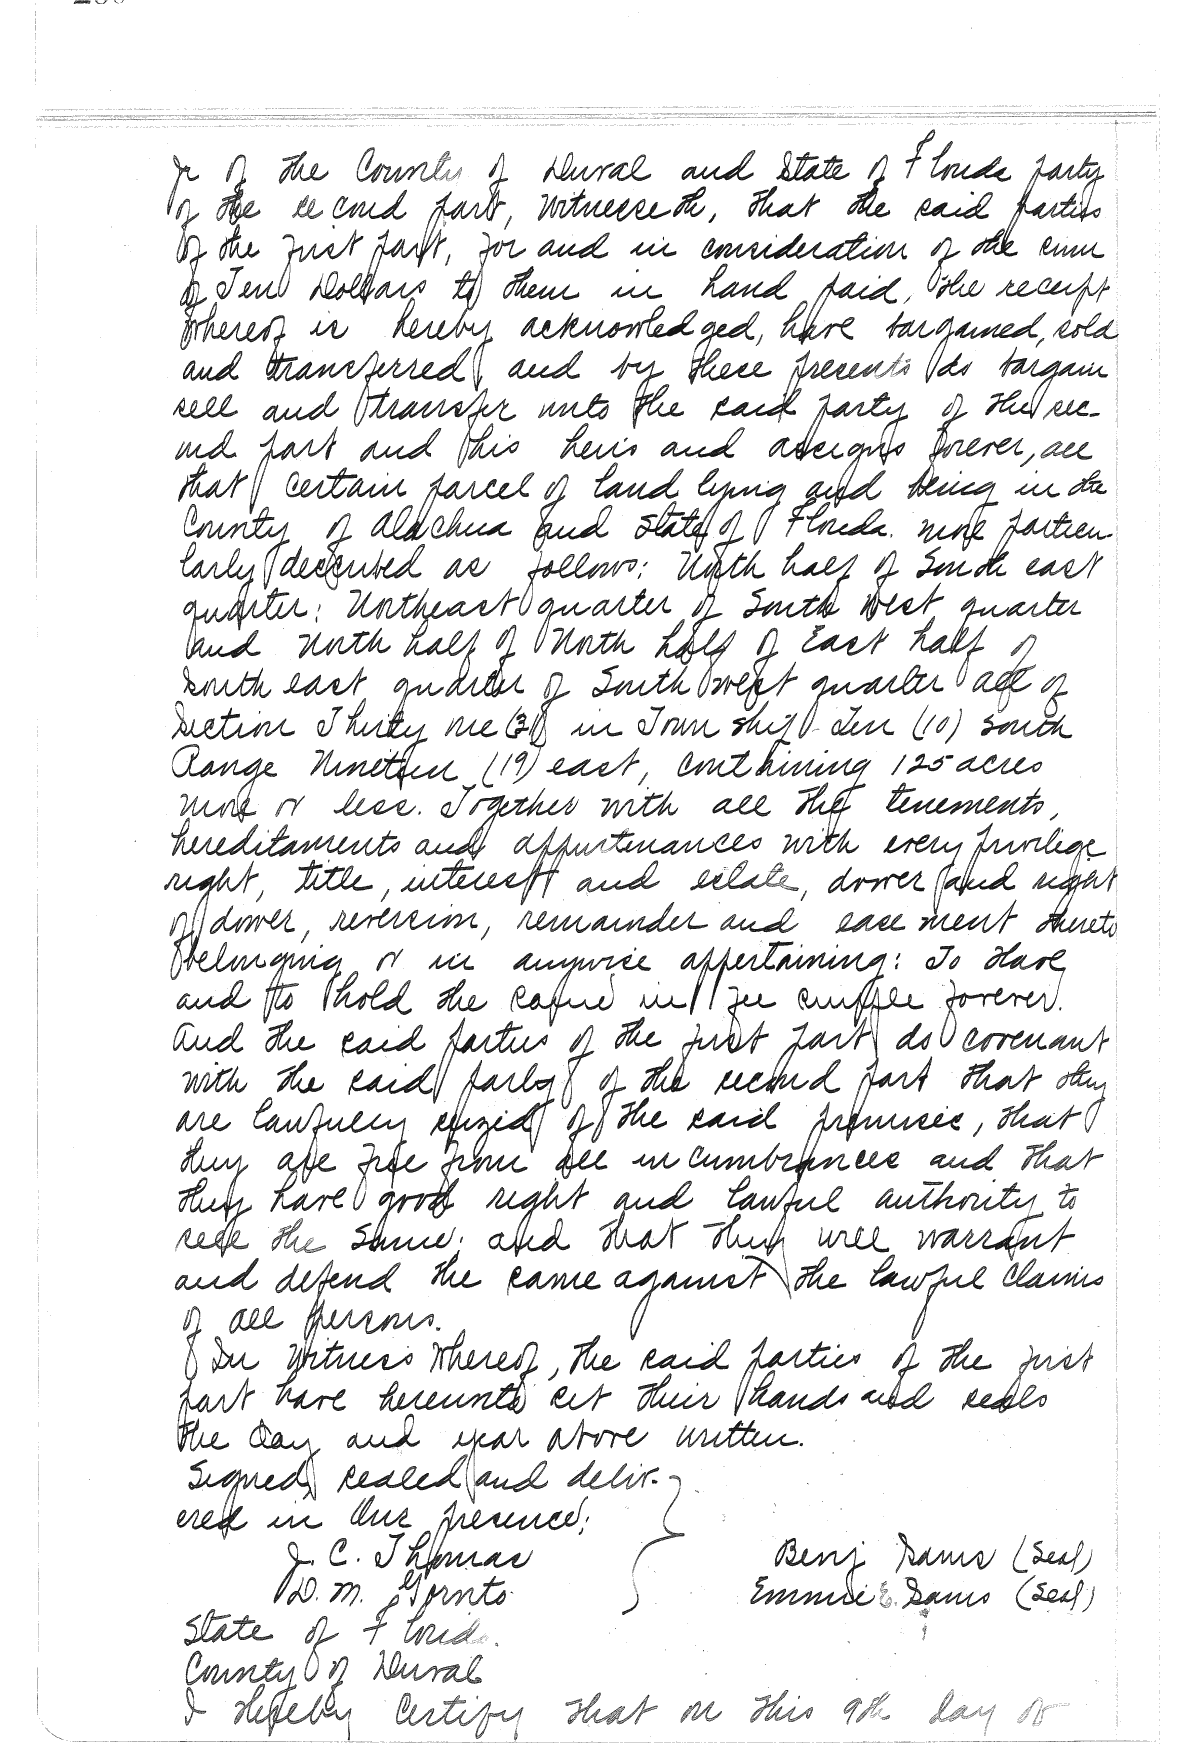 Jr of the County of Duval and State of Florida party
of the second part, Witnesseth, that the said parties
of the first part, for and in consideration of the sum
of Ten Dollars to them in hand paid, the receipt
whereof is hereby acknowledged, have bargained, sold
and transferred and by these presents do bargain
sell and transfer unto the said party of the sec-
ond part and his heirs and assigns forever, all
that certain parcel of land lying and being in the
County of Alachua and State of Florida. more particu
larly described as follows: North half of South east
quarter: Northeast quarter of South West quarter
and North half of North half of East half of
South east quarter of South west quarter all of
Section Thirty one (31) in Town ship Ten (10) South
Range Nineteen (19) east, containing 125 acres
more or less. Together with all the tenements,
hereditaments and appurtenances with every privilege
right, title, interest and estate, dower and right
of dower, reversion, remainder and easement thereto
belonging or in anywise appertaining: To Have
and to hold the same in fee simple forever.
And the said parties of the first part do covenant
with the said party of the second part that they
are lawfully seized of the said premises, that
they are free from all incumbrances and that
they have good right and lawful authority to
sell the same; and that they will warrant
and defend the same against the lawful claims
of all persons.
In Witness Whereof, the said parties of the first
part have hereunto set their hands and seals
the day and year above written.
Signed, sealed and deliv-
ered in Our presence:
J. C. Thomas Benj Sams (Seal)
D. M. Gornto Emmie E. Sams (Seal)
State of Florida.
County of Duval
I Hereby Certify that on this 9th day of